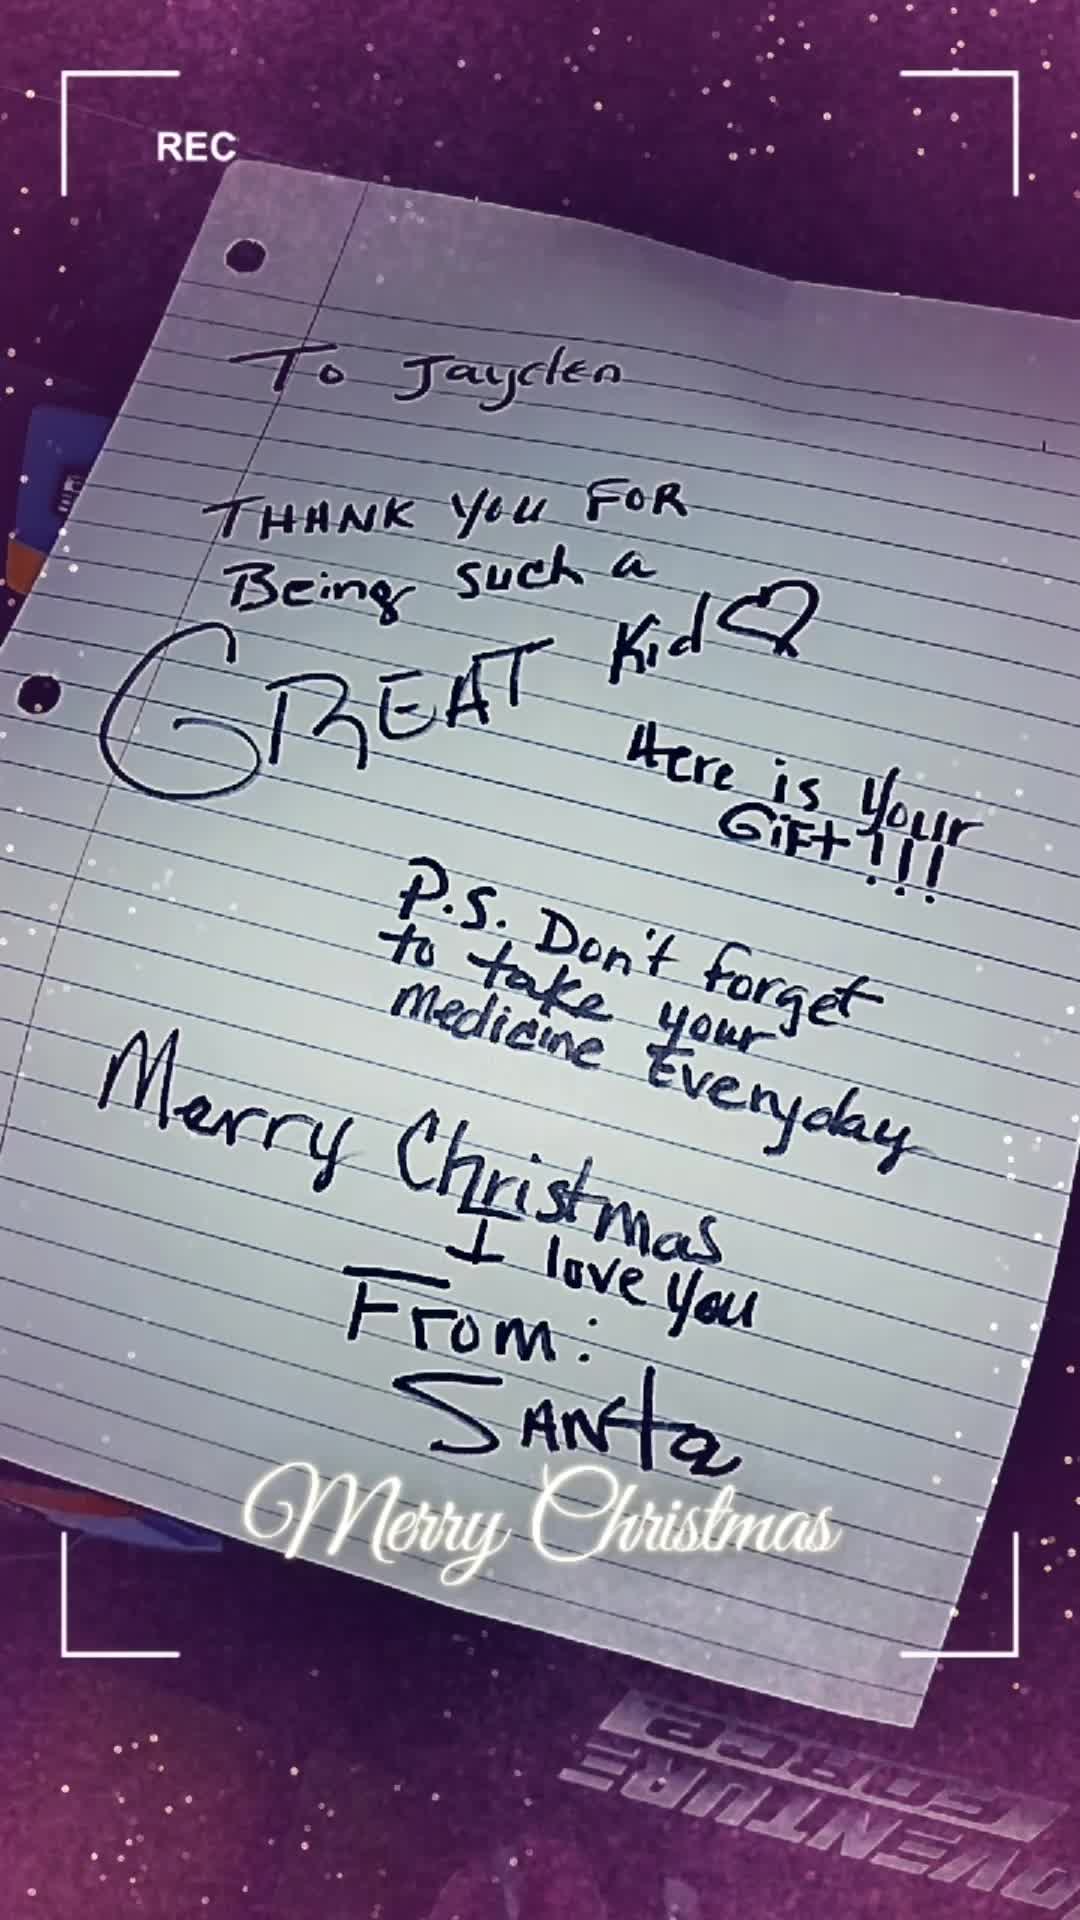 REC
To Jayden
THANK YOU FOR
Being such a
GREAT Kid
Here is Your
GiFt!!!
P.S. Don't forget
to take your
Medicine Everyday
Merry Christmas
I love you
From:
SANta
Merry Christmas
ADVENTURE
FORCE